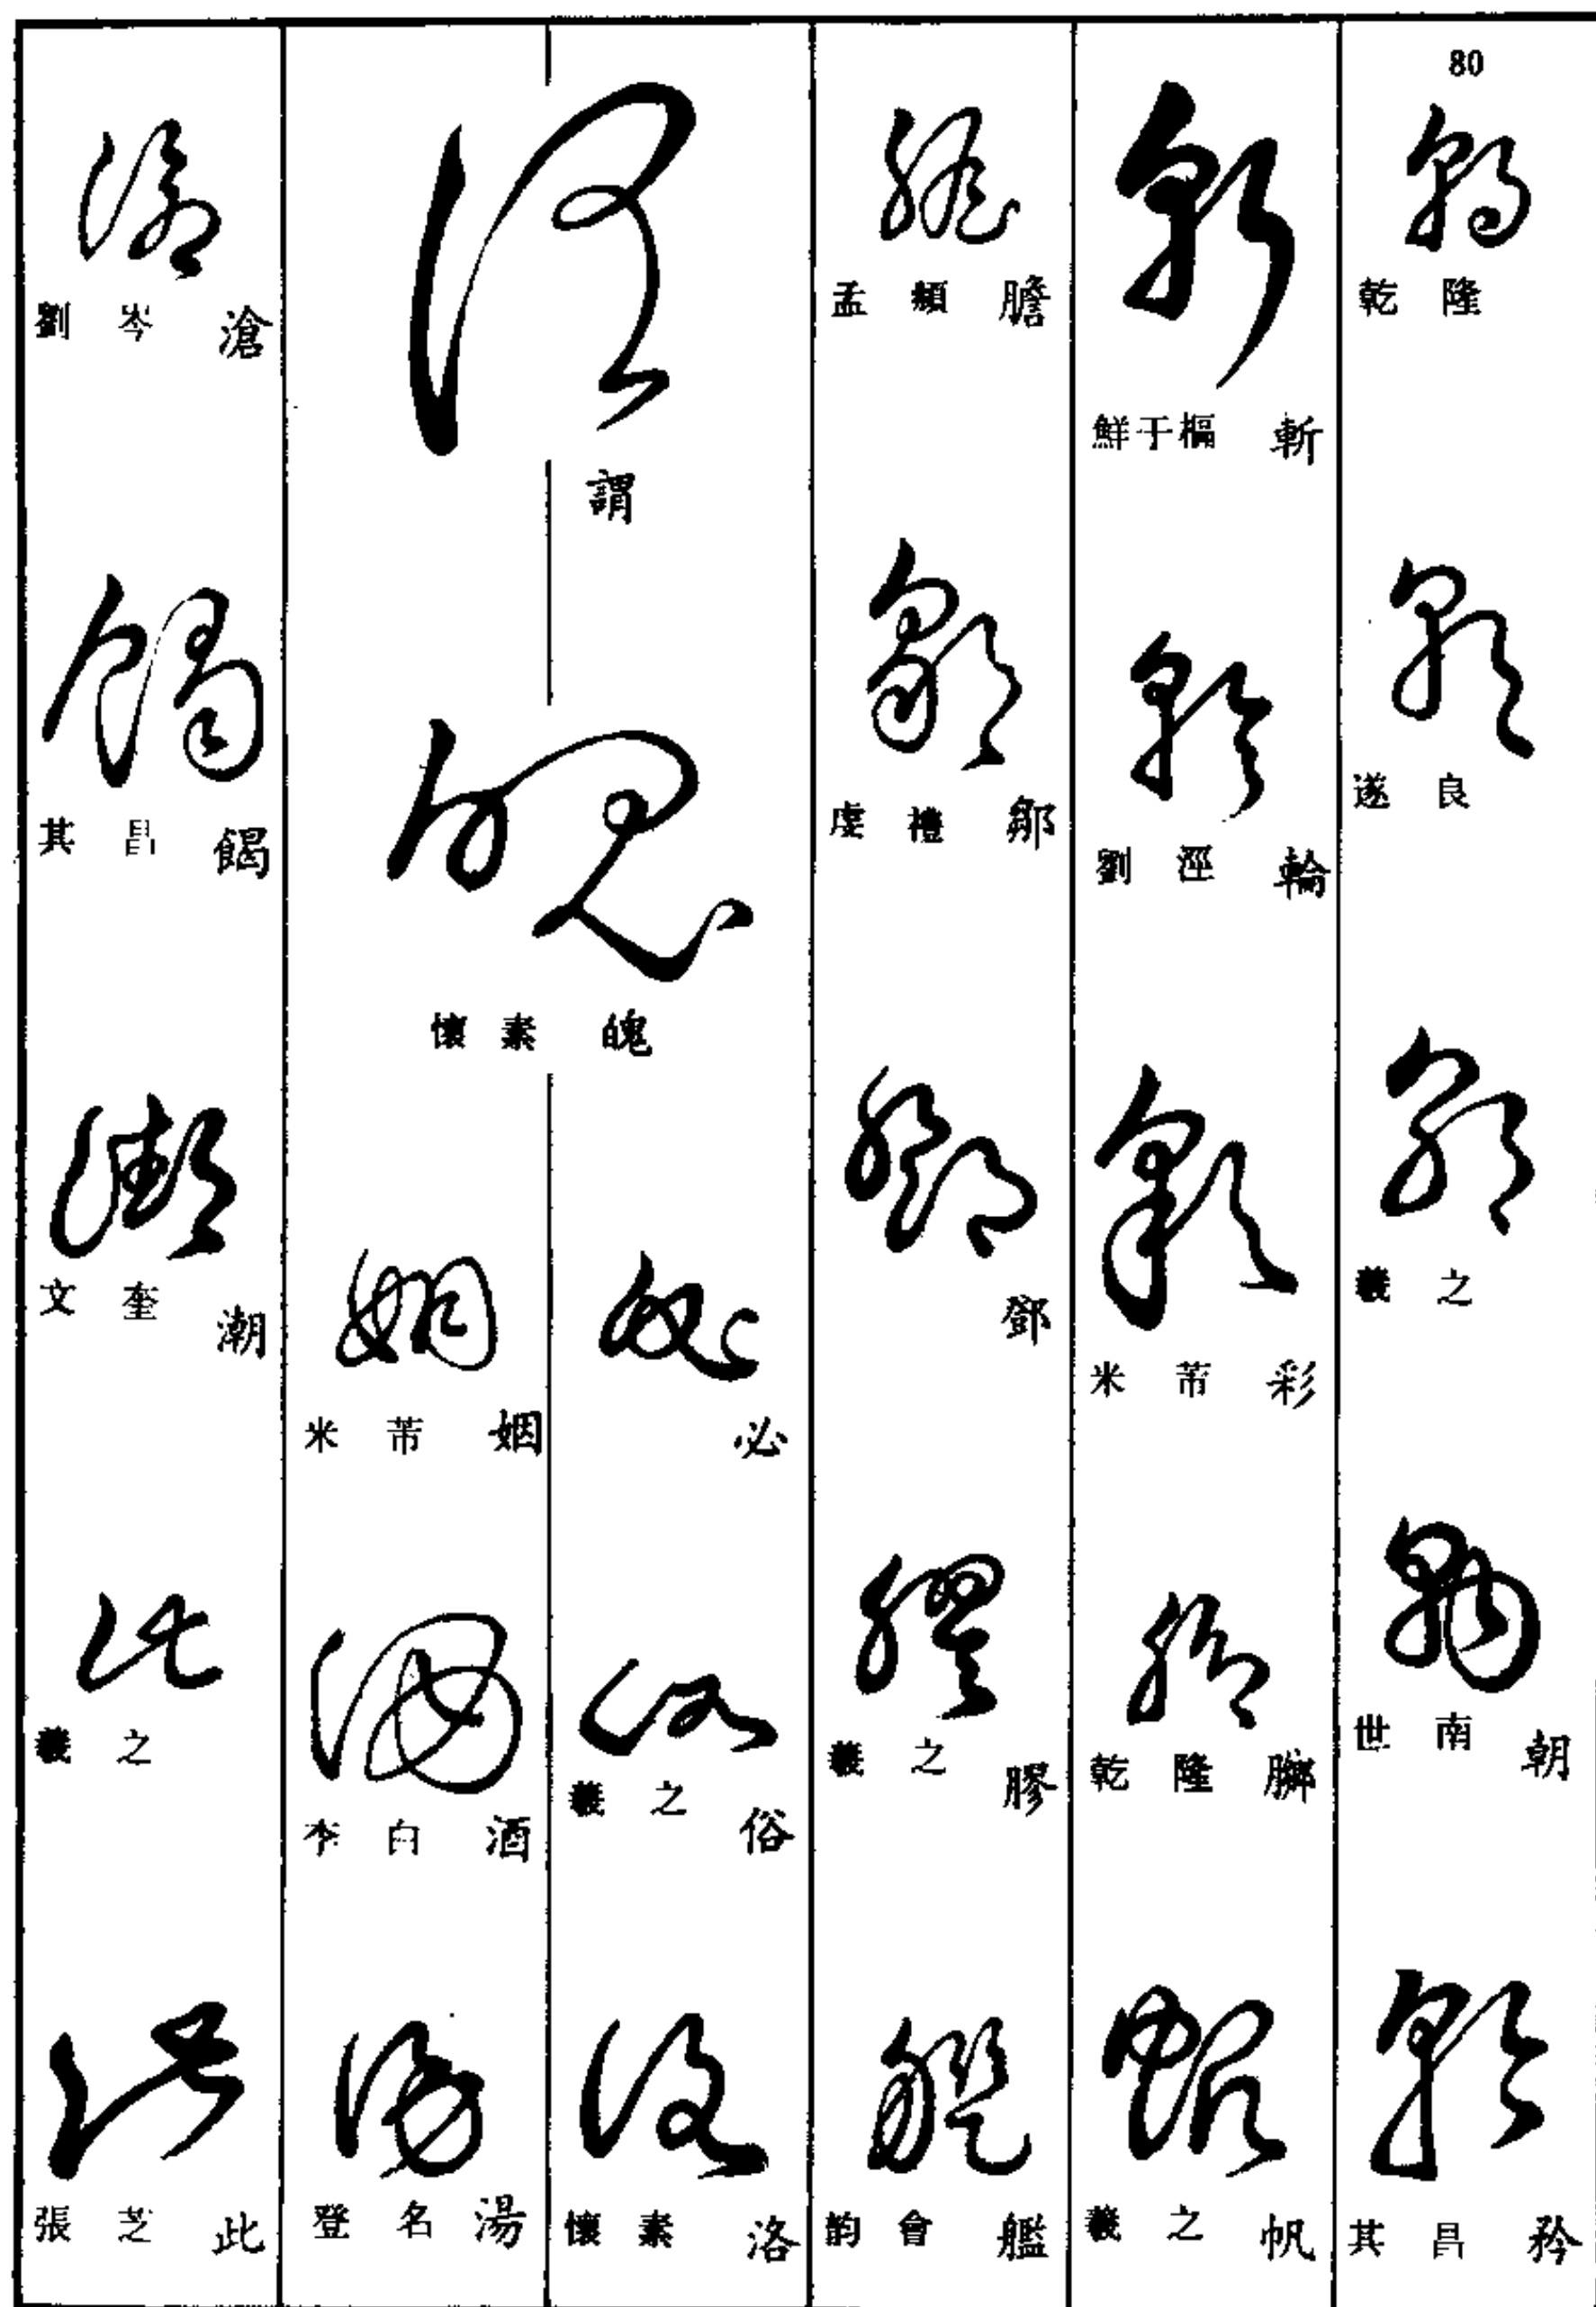 80
乾隆
遂良
羲之
世南 朝
其昌 矜
鮮于樞 斬
劉涇 輪
米芾 彩
乾隆 臃
羲之 帆
孟頫 膽
虔禮 鄒
鄧
羲之 膠
韵會 艦
謂
懷素 魄
必
羲之 俗
懷素 洛
米芾 姻
李白 酒
登名 湯
劉岑 滄
其昌 餲
文奎 潮
羲之
張芝 此